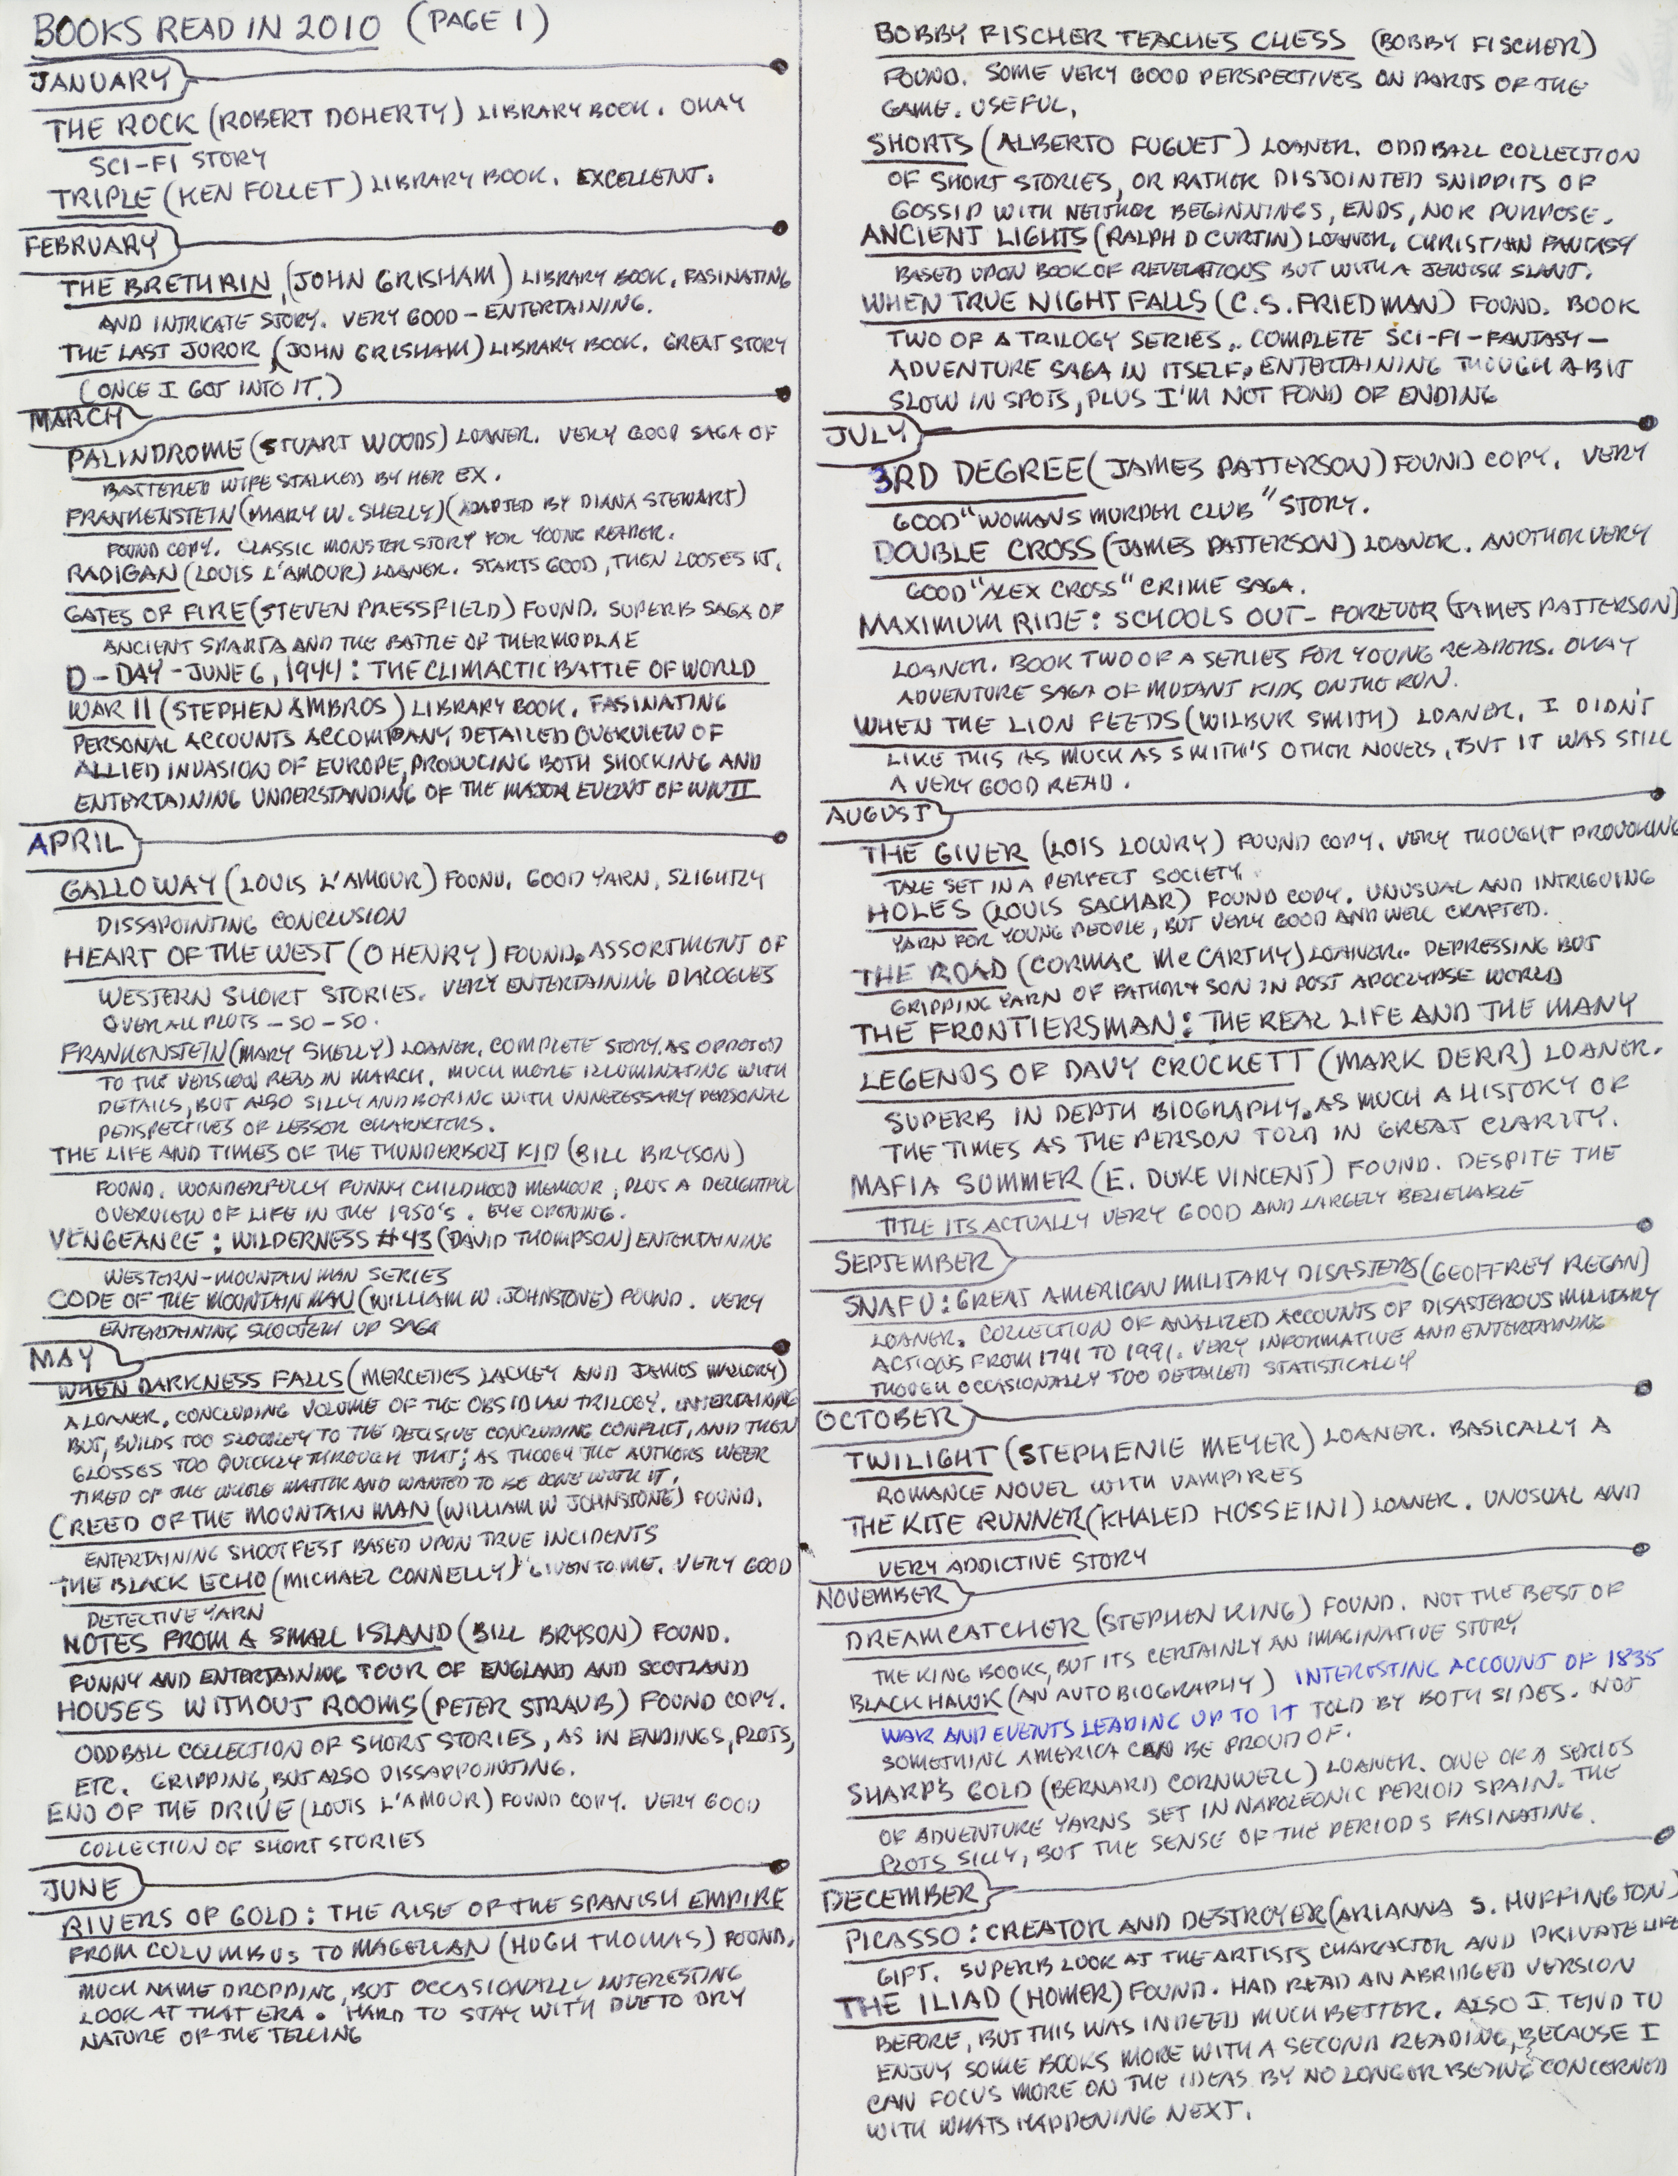 BOOKS READ IN 2010 (PAGE 1)
JANUARY
THE ROCK (ROBERT DOHERTY) LIBRARY BOOK. OKAY
SCI-FI STORY
TRIPLE (KEN FOLLET) LIBRARY BOOK. EXCELLENT.
FEBRUARY
THE BRETHRIN (JOHN GRISHAM) LIBRARY BOOK. FASINATING
AND INTRICATE STORY. VERY GOOD - ENTERTAINING.
THE LAST JUROR (JOHN GRISHAM) LIBRARY BOOK. GREAT STORY
(ONCE I GOT INTO IT.)
MARCH
PALINDROME (STUART WOODS) LOANER. VERY GOOD SAGA OF
BATTERED WIFE STALKED BY HER EX.
FRANKENSTEIN (MARY W. SHELLY) (ADAPTED BY DIANA STEWART)
FOUND COPY. CLASSIC MONSTER STORY FOR YOUNG READER.
RADIGAN (LOUIS L'AMOUR) LOANER. STARTS GOOD, THEN LOOSES IT.
GATES OF FIRE (STEVEN PRESSFIELD) FOUND. SUPERB SAGA OF
ANCIENT SPARTA AND THE BATTLE OF THERMOPLAE
D-DAY-JUNE 6, 1944: THE CLIMACTIC BATTLE OF WORLD
WAR II (STEPHEN AMBROS) LIBRARY BOOK. FASINATING
PERSONAL ACCOUNTS ACCOMPANY DETAILED OVERVIEW OF
ALLIED INVASION OF EUROPE, PRODUCING BOTH SHOCKING AND
ENTERTAINING UNDERSTANDING OF THE MAJOR EVENT OF WWII
APRIL
GALLOWAY (LOUIS L'AMOUR) FOUND. GOOD YARN, SLIGHTLY
DISSAPOINTING CONCLUSION
HEART OF THE WEST (O HENRY) FOUND. ASSORTMENT OF
WESTERN SHORT STORIES. VERY ENTERTAINING DIALOGUES
OVERALL PLOTS - SO-SO.
FRANKENSTEIN (MARY SHELLY) LOANER. COMPLETE STORY. AS OPPOSED
TO THE VERSION READ IN MARCH. MUCH MORE ILLUMINATING WITH
DETAILS, BUT ALSO SILLY AND BORING WITH UNNECESSARY PERSONAL
PERSPECTIVES OF LESSOR CHARACTERS.
THE LIFE AND TIMES OF THE THUNDERBOLT KID (BILL BRYSON)
FOUND. WONDERFULLY FUNNY CHILDHOOD MEMOUR, PLUS A DELIGHTFUL
OVERVIEW OF LIFE IN THE 1950'S. EYE OPENING.
VENGEANCE: WILDERNESS #43 (DAVID THOMPSON) ENTERTAINING
WESTERN-MOUNTAIN MAN SERIES
CODE OF THE MOUNTAIN MAN (WILLIAM W. JOHNSTONE) FOUND. VERY
ENTERTAINING SHOOTEM UP SAGA
MAY
WHEN DARKNESS FALLS (MERCEDES LACKEY AND JAMES MALLORY)
A LOANER. CONCLUDING VOLUME OF THE OBSIDIAN TRILOGY. ENTERTAINING
BUT, BUILDS TOO SLOWLEY TO THE DECISIVE CONCLUDING CONFLICT, AND THEN
GLOSSES TOO QUICKLY THROUGH THAT; AS THOUGH THE AUTHORS WEER
TIRED OF THE WHOLE MATTER AND WANTED TO BE DONE WITH IT.
CREED OF THE MOUNTAIN MAN (WILLIAM W JOHNSTONE) FOUND.
ENTERTAINING SHOOTFEST BASED UPON TRUE INCIDENTS
THE BLACK ECHO (MICHAEL CONNELLY) GIVEN TO ME. VERY GOOD
DETECTIVE YARN
NOTES FROM A SMALL ISLAND (BILL BRYSON) FOUND.
FUNNY AND ENTERTAINING TOUR OF ENGLAND AND SCOTLAND
HOUSES WITHOUT ROOMS (PETER STRAUB) FOUND COPY.
ODDBALL COLLECTION OF SHORT STORIES, AS IN ENDINGS, PLOTS,
ETC. GRIPPING, BUT ALSO DISSAPPOINTING.
END OF THE DRIVE (LOUIS L'AMOUR) FOUND COPY. VERY GOOD
COLLECTION OF SHORT STORIES
JUNE
RIVERS OF GOLD: THE RISE OF THE SPANISH EMPIRE
FROM COLUMBUS TO MAGELLAN (HUGH THOMAS) FOUND.
MUCH NAME DROPPING, BUT OCCASIONALLY INTERESTING
LOOK AT THAT ERA. HARD TO STAY WITH DUE TO DRY
NATURE OF THE TELLING
BOBBY FISCHER TEACHES CHESS (BOBBY FISCHER)
FOUND. SOME VERY GOOD PERSPECTIVES ON PARTS OF THE
GAME. USEFUL.
SHORTS (ALBERTO FUGUET) LOANER. ODDBALL COLLECTION
OF SHORT STORIES, OR RATHER DISJOINTED SNIPPITS OF
GOSSIP WITH NEITHER BEGINNINGS, ENDS, NOR PURPOSE.
ANCIENT LIGHTS (RALPH D CURTIN) LOANER. CHRISTIAN FANTASY
BASED UPON BOOK OF REVELATIONS BUT WITH A JEWISH SLANT.
WHEN TRUE NIGHT FALLS (C.S. FRIEDMAN) FOUND. BOOK
TWO OF A TRILOGY SERIES. COMPLETE SCI-FI-FANTASY-
ADVENTURE SAGA IN ITSELF. ENTERTAINING THOUGH A BIT
SLOW IN SPOTS, PLUS I'M NOT FOND OF ENDING
JULY
3RD DEGREE (JAMES PATTERSON) FOUND COPY. VERY
GOOD "WOMANS MURDER CLUB" STORY.
DOUBLE CROSS (JAMES PATTERSON) LOANER. ANOTHER VERY
GOOD "ALEX CROSS" CRIME SAGA.
MAXIMUM RIDE: SCHOOLS OUT - FOREVER (JAMES PATTERSON)
LOANER. BOOK TWO OF A SERIES FOR YOUNG READERS. OKAY
ADVENTURE SAGA OF MUTANT KIDS ON THE RUN.
WHEN THE LION FEEDS (WILBUR SMITH) LOANER. I DIDN'T
LIKE THIS AS MUCH AS SMITH'S OTHER NOVELS, BUT IT WAS STILL
A VERY GOOD READ.
AUGUST
THE GIVER (LOIS LOWRY) FOUND COPY. VERY THOUGHT PROVOKING
TALE SET IN A PERFECT SOCIETY.
HOLES (LOUIS SACHAR) FOUND COPY. UNUSUAL AND INTRIGUING
YARN FOR YOUNG PEOPLE, BUT VERY GOOD AND WELL CRAFTED.
THE ROAD (CORMAC McCARTHY) LOANER. DEPRESSING BUT
GRIPPING YARN OF FATHER & SON IN POST APOCLYPSE WORLD
THE FRONTIERSMAN: THE REAL LIFE AND THE MANY
LEGENDS OF DAVY CROCKETT (MARK DERR) LOANER.
SUPERB IN DEPTH BIOGRAPHY. AS MUCH A HISTORY OF
THE TIMES AS THE PERSON TOLD IN GREAT CLARITY.
MAFIA SUMMER (E. DUKE VINCENT) FOUND. DESPITE THE
TITLE ITS ACTUALLY VERY GOOD AND LARGELY BELIEVABLE
SEPTEMBER
SNAFU: GREAT AMERICAN MILITARY DISASTERS (GEOFFREY REGAN)
LOANER. COLLECTION OF ANALIZED ACCOUNTS OF DISASTEROUS MILITARY
ACTIONS FROM 1741 TO 1991. VERY INFORMATIVE AND ENTERTAINING
THOUGH OCCASIONALLY TOO DETAILED STATISTICALLY
OCTOBER
TWILIGHT (STEPHENIE MEYER) LOANER. BASICALLY A
ROMANCE NOVEL WITH VAMPIRES
THE KITE RUNNER (KHALED HOSSEINI) LOANER. UNUSUAL AND
VERY ADDICTIVE STORY
NOVEMBER
DREAMCATCHER (STEPHEN KING) FOUND. NOT THE BEST OF
THE KING BOOKS, BUT ITS CERTAINLY AN IMAGINATIVE STORY
BLACK HAWK (AN AUTOBIOGRAPHY) INTERESTING ACCOUNT OF 1835
WAR AND EVENTS LEADING UP TO IT TOLD BY BOTH SIDES. NOT
SOMETHING AMERICA CAN BE PROUD OF.
SHARP'S GOLD (BERNARD CORNWELL) LOANER. ONE OF A SERIES
OF ADVENTURE YARNS SET IN NAPOLEONIC PERIOD SPAIN. THE
PLOTS SILLY, BUT THE SENSE OF THE PERIODS FASINATING.
DECEMBER
PICASSO: CREATOR AND DESTROYER (ARIANNA S. HUFFINGTON)
GIFT. SUPERB LOOK AT THE ARTISTS CHARACTOR AND PRIVATE LIFE
THE ILIAD (HOMER) FOUND. HAD READ AN ABRIDGED VERSION
BEFORE, BUT THIS WAS INDEED MUCH BETTER. ALSO I TEND TO
ENJOY SOME BOOKS MORE WITH A SECOND READING, BECAUSE I
CAN FOCUS MORE ON THE IDEAS BY NO LONGER BEING CONCERNED
WITH WHATS HAPPENING NEXT.